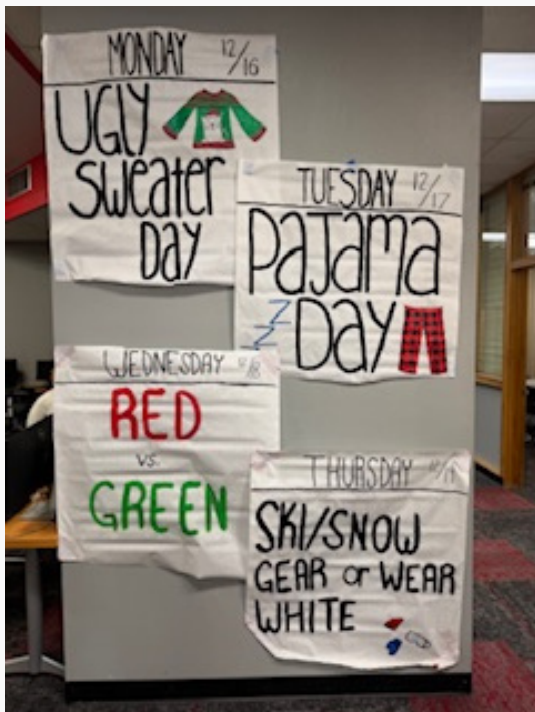 MONDAY 12/16
UGLY
Sweater
Day
TUESDAY 12/17
Pajama
Day
WEDNESDAY 12/18
RED
vs.
GREEN
THURSDAY 12/19
SKI/SNOW
GEAR or WEAR
WHITE